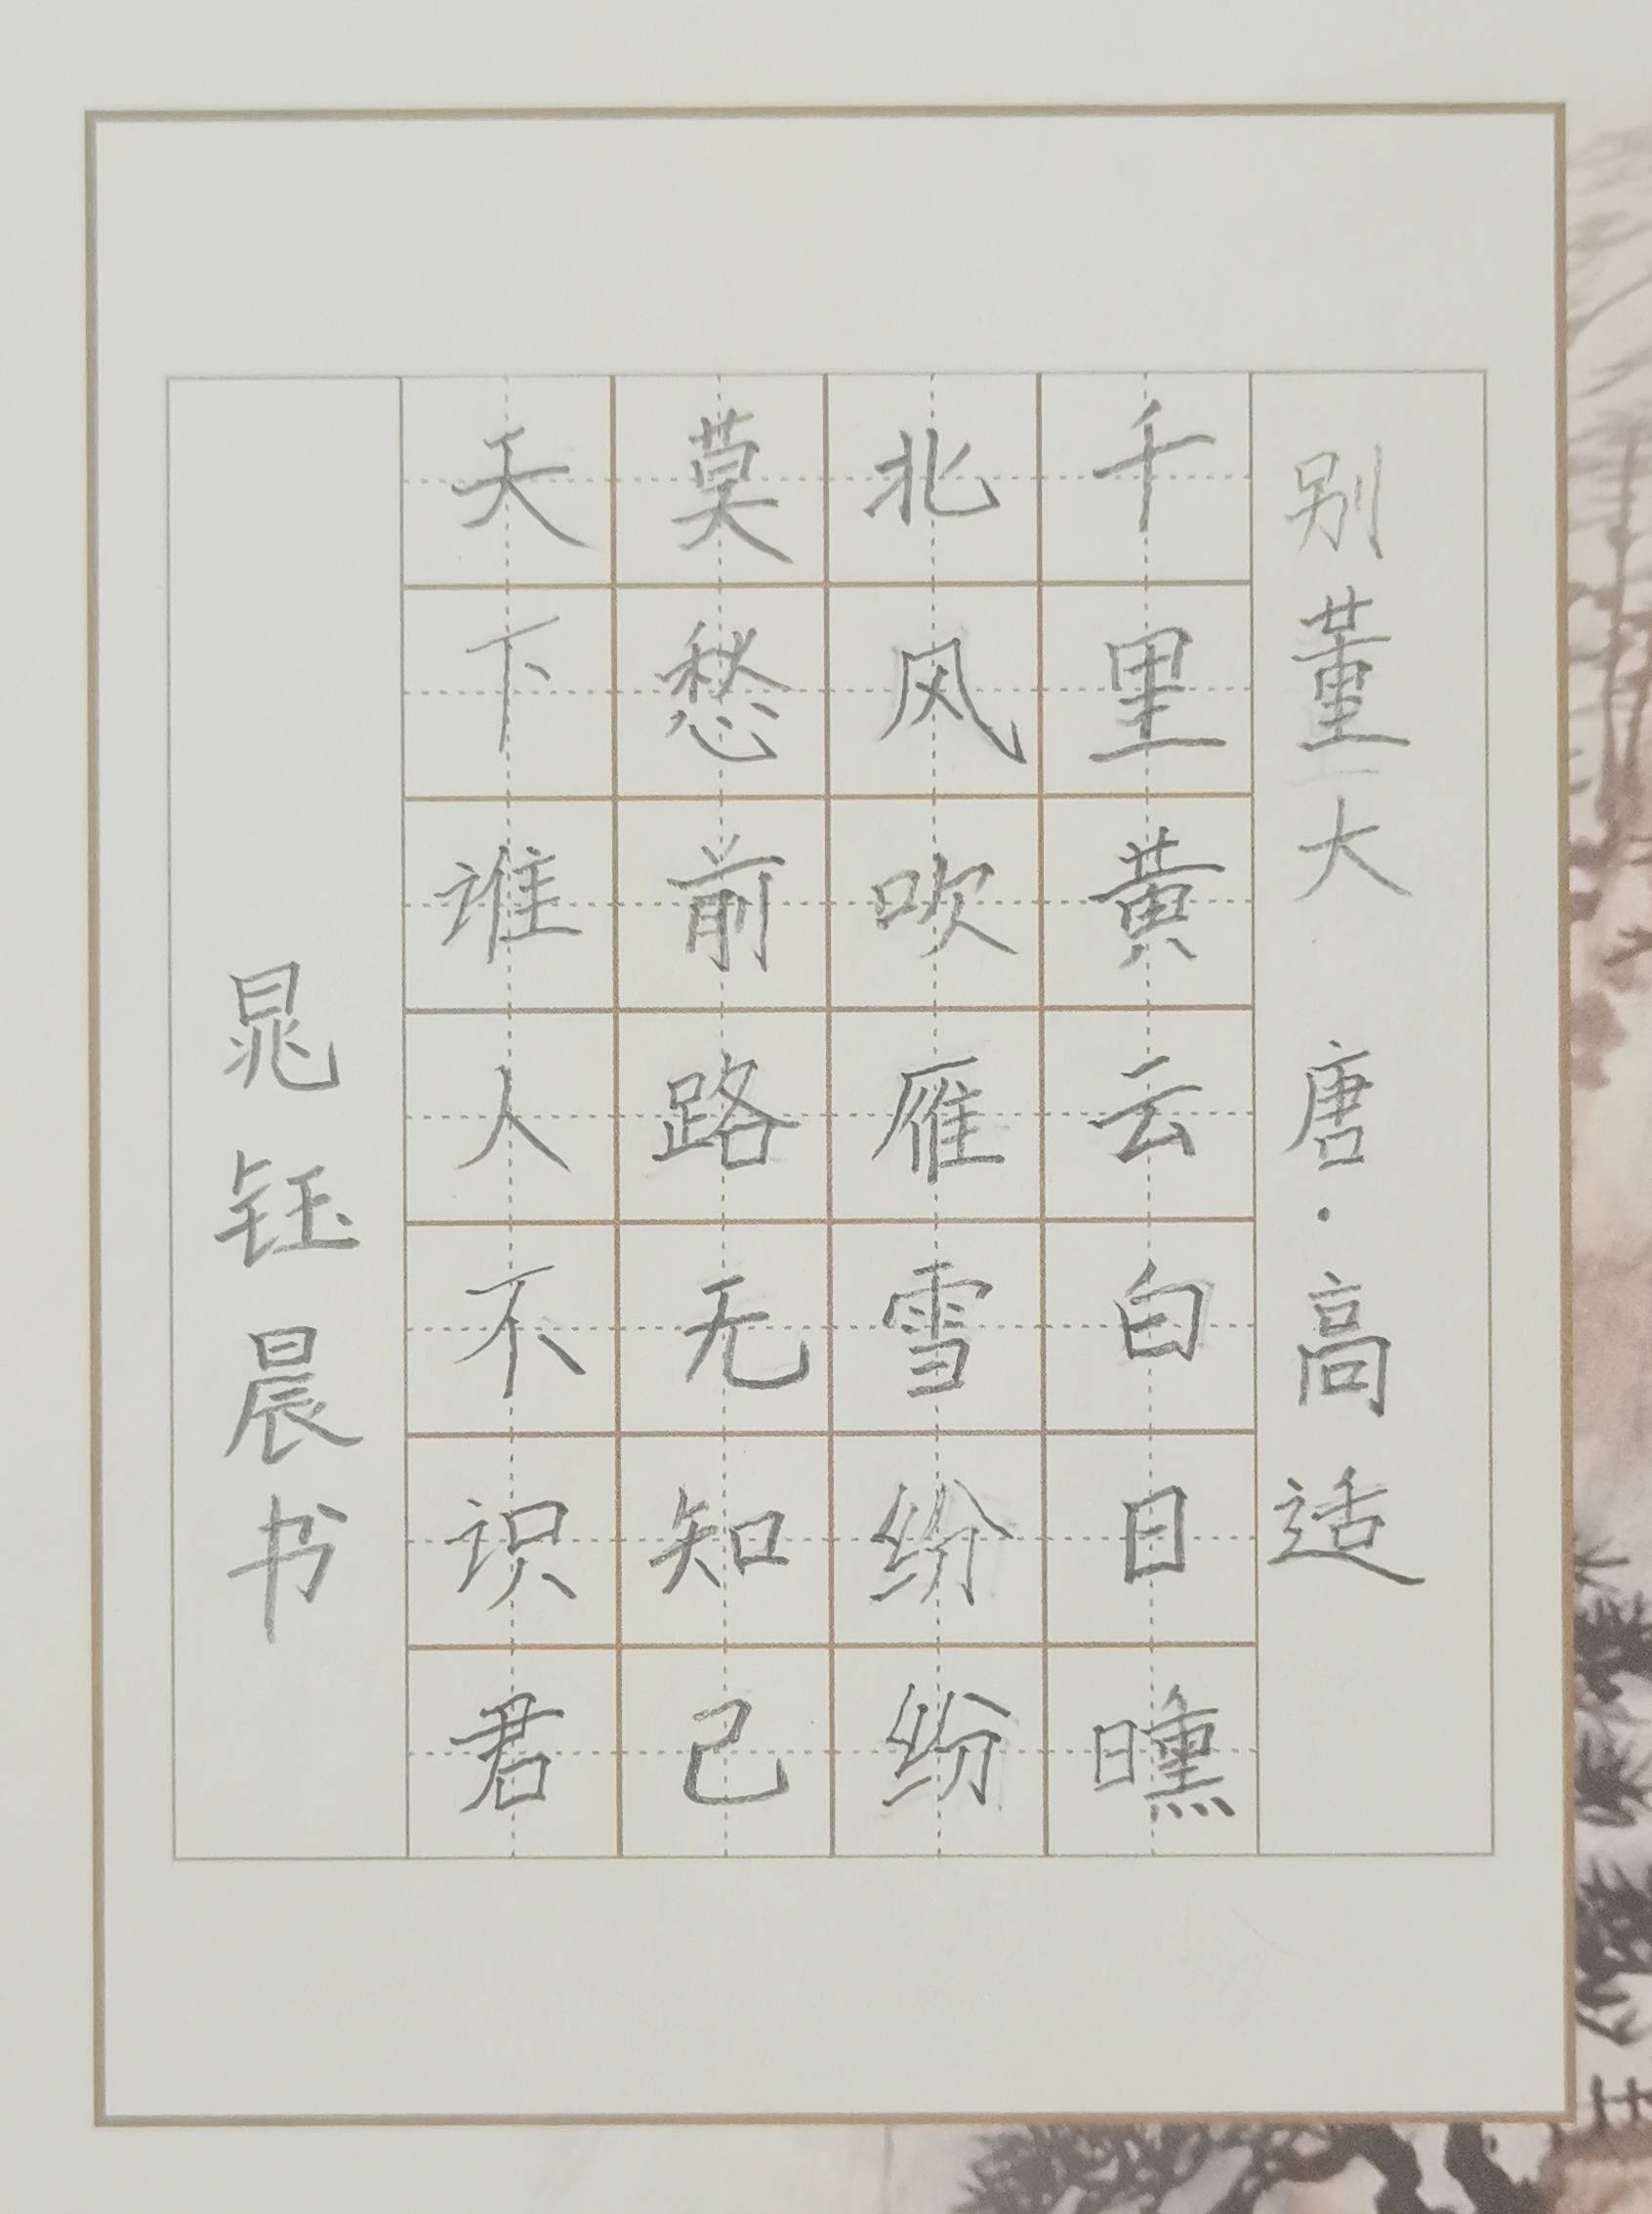 别董大 唐·高适
千里黄云白日曛
北风吹雁雪纷纷
莫愁前路无知己
天下谁人不识君
晁钰晨书